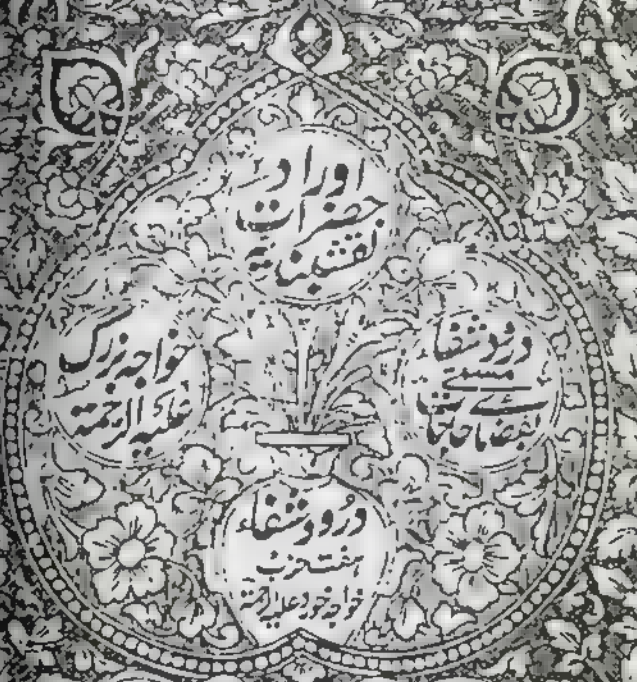 اوراد
حضرات
نقشبندیہ
درود شفاء
مسمی
خواجہ بزرگ
علیہ الرحمۃ
درود شفاء
ہفت حزب
خواجہ خورد علیہ الرحمۃ